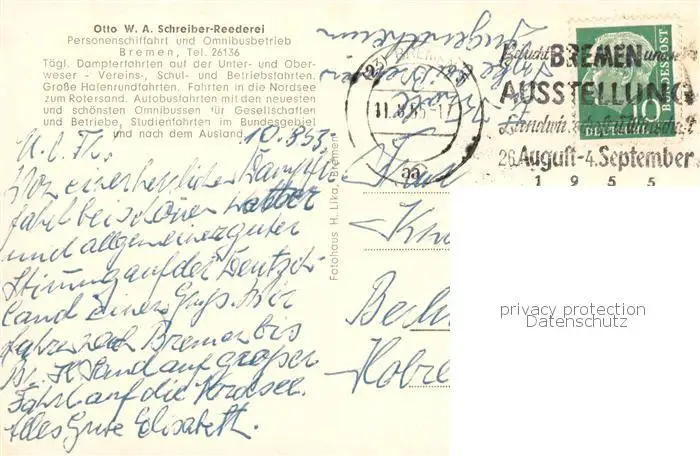 Otto W. A. Schreiber-Reederei
Personenschiffahrt und Omnibusbetrieb
Bremen, Tel. 26136
Tägl. Dampferfahrten auf der Unter- und Ober-
weser - Vereins-, Schul- und Betriebsfahrten.
Große Hafenrundfahrten. Fahrten in die Nordsee
zum Rotersand. Autobusfahrten mit den neuesten
und schönsten Omnibussen für Gesellschaften
und Betriebe, Studienfahrten im Bundesgebiet
und nach dem Ausland.
10.8.55.
Von einer herrlichen Dampf
fahrt bei schönem Wetter
und allgemeiner guter
Stimung auf der Deutsch-
land einen Gruß. Wir
fahren nach Bremen bis
auf großer
Fahrt auf die Nordsee.
Alles Gute Elisabeth.
Fotohaus H. Lika, Bremen
BREMEN
11.8.55-17
aa
Besucht BREMEN und seine
AUSSTELLUNG
26. August-4. September
1 9 5 5
40
DEUTSCHE
BUNDESPOST
Berlin
Hobre
privacy protection
Datenschutz